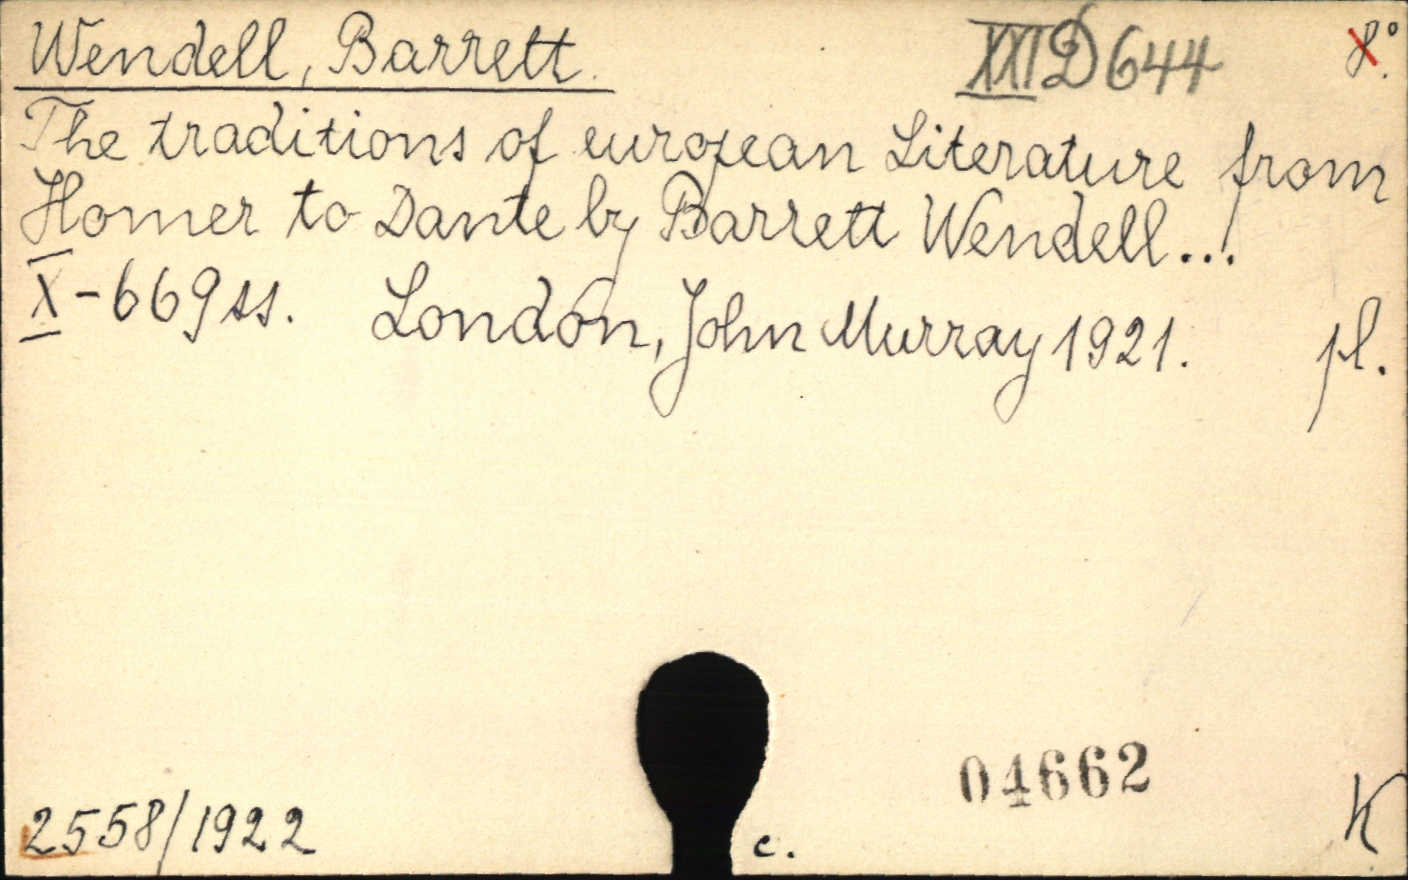 Wendell, Barrett.
XXI D 644
8°.
The traditions of european Literature from
Homer to Dante by Barrett Wendell...
X-669ss. London, John Murray 1921. pl.
04662
2558/1922
c.
K